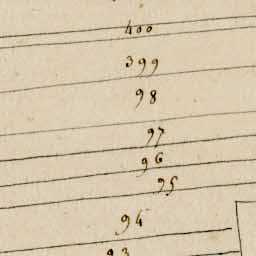 400
399
98
97
96
95
94
93